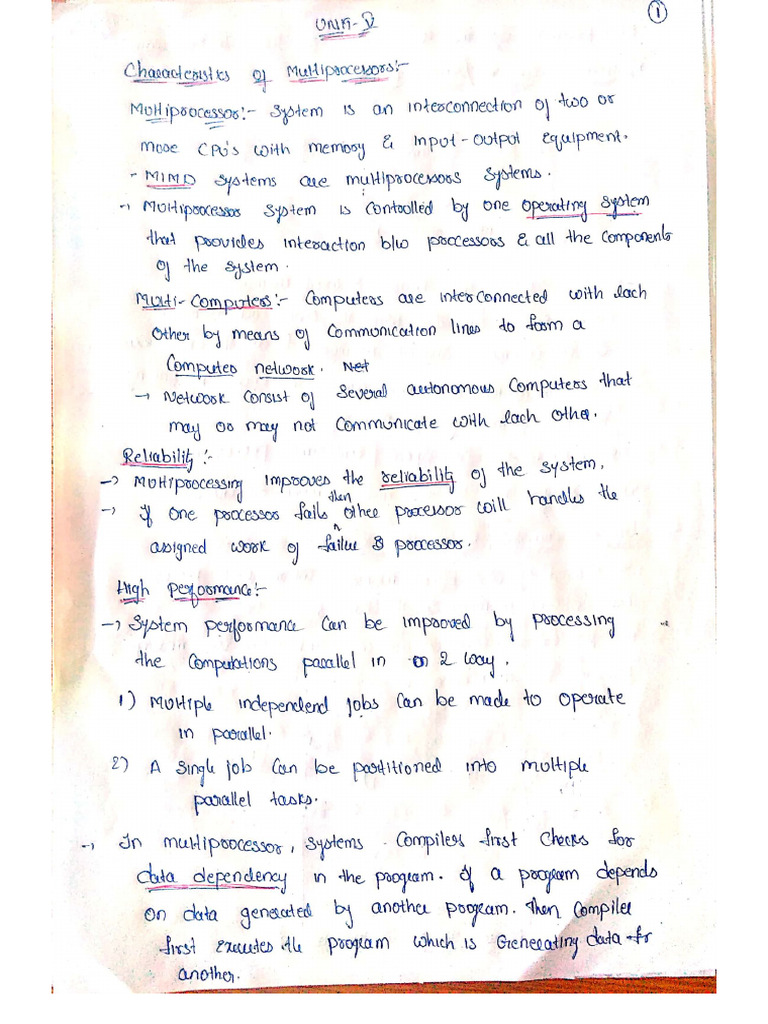 1
Unit-V
Characteristics of Multiprocessors:-
Multiprocessor:- System is an interconnection of two or
more CPU's with memory & input-output equipment.
- MIMD systems are multiprocessors systems.
→ Multiprocessor system is controlled by one operating system
that provides interaction b/w processors & all the components
of the system.
Multi-Computers:- Computers are interconnected with each
other by means of communication lines to form a
Computer network. Net
→ Network consist of several autonomous computers that
may or may not communicate with each other.
Reliability:-
→ Multiprocessing improves the reliability of the system,
→ if one processor fails then other processor will handles the
assigned work of failure processor.
High Performance:-
→ System performance can be improved by processing
the computations parallel in 2 way.
1) Multiple independend jobs can be made to operate
in parallel.
2) A single job can be partitioned into multiple
parallel tasks.
→ In multiprocessor, systems. Compilers first checks for
data dependency in the program. if a program depends
on data generated by another program. Then compiler
first executes the program which is Generating data for
another.